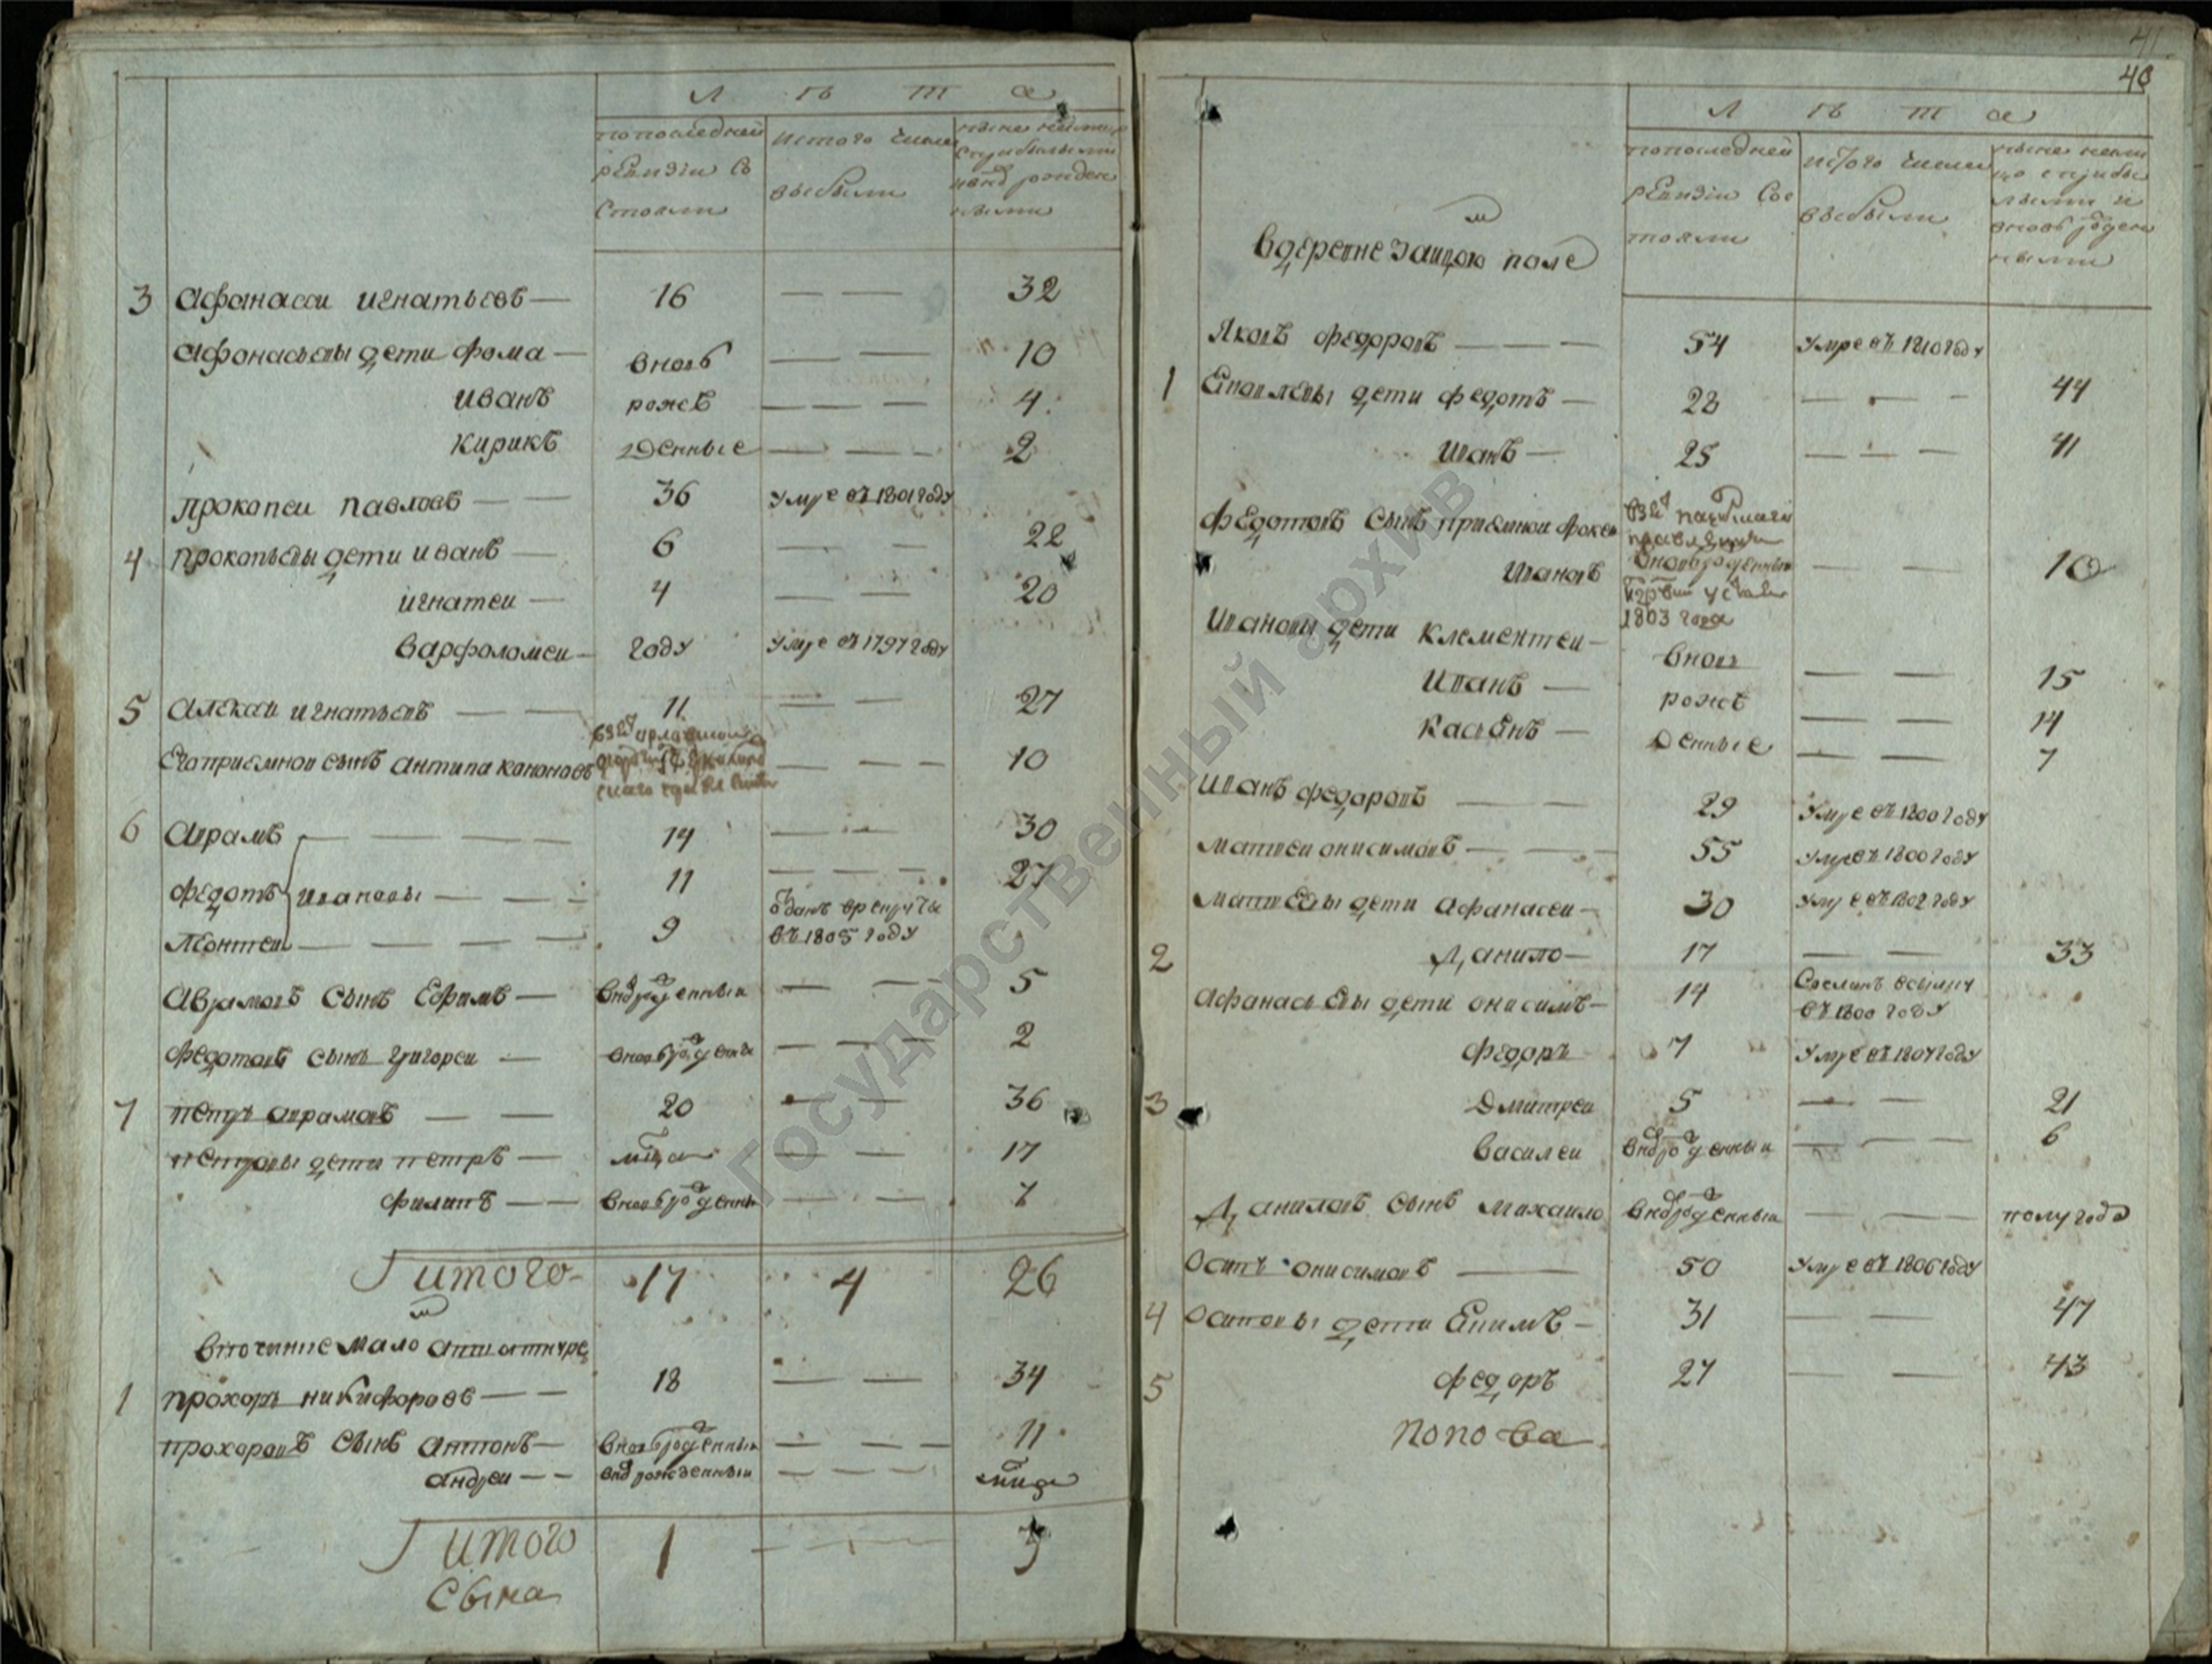 Л ѣ т а
по последней
ревизіи со
стояли
ис того числа
выбыли
3 Афанасеи игнатьевъ — 16 — — 32
Афонасьевы дети фома — вновь — — 10
иванъ рожѣ — — — 4
кирикъ денные — — — 2
прокопеи павловъ — — 36 умре въ 1801 году
4 прокопьевы дети иванъ — 6 — — 22
игнатеи — 4 — — 20
варфоломеи — году умре въ 1797 году
5 Алексеи игнатьевъ — — 11 — — 27
Его приемнои сынъ антипа кононовъ — — — 10
6 Аврамъ — — — — 14 — — 30
федотъ ивановы — — — 11 — — — 27
Леонтеи — — — — 9 отданъ в рекруты
въ 1805 году
Аврамовъ сынъ Ефимъ — вновьрожденныи — — 5
федотовъ сынъ григореи — вновьрожденны — — — 2
7 петръ аврамовъ — — 20 — — 36
петровы дети петръ — мца — — 17
филипъ — — вновьрожденны — — — 7
итого 17 4 26
в вотчинне мало
1 прохоръ никифоровъ — — 18 — — 34
прохоровъ сынъ антонъ — вновьрожденныи — — — 11
андреи — — вновьрожденныи — — —
итого 1 — — — 3
сына
41
40
Л ѣ т а
по последней
ревизіи сос
тояли
ис того числа
выбыли
в деревне защою поле
Яковъ федоровъ — — — 54 умре въ 1810 году
1 Яковлевы дети федотъ — 28 — — — 44
иванъ — 25 — — — 41
федотовъ сынъ приемнои фока
ивановъ — — 10
1803 года
ивановы дети клементеи — вновь — — 15
иванъ — рожѣ — — 14
касьянъ — денные — — 7
иванъ федаровъ — — 29 умре въ 1800 году
матвеи онисимовъ — — — 55 умре въ 1800 году
матвеевы дети афанасеи — 30 умре въ 1802 году
2 Данило — 17 — — 33
Афанасьевы дети онисимъ — 14 сосланъ в
въ 1800 году
федоръ 7 умре въ 1804 году
3 дмитреи 5 — — 21
василеи вновьрожденныи — — — 6
Даниловъ сынъ михаило вновьрожденныи — — — полугода
Осипъ онисимовъ — 50 умре въ 1806 году
4 Осиповы дети Екимъ — 31 — — 47
5 федоръ 27 — — 43
попова
Государственный архив